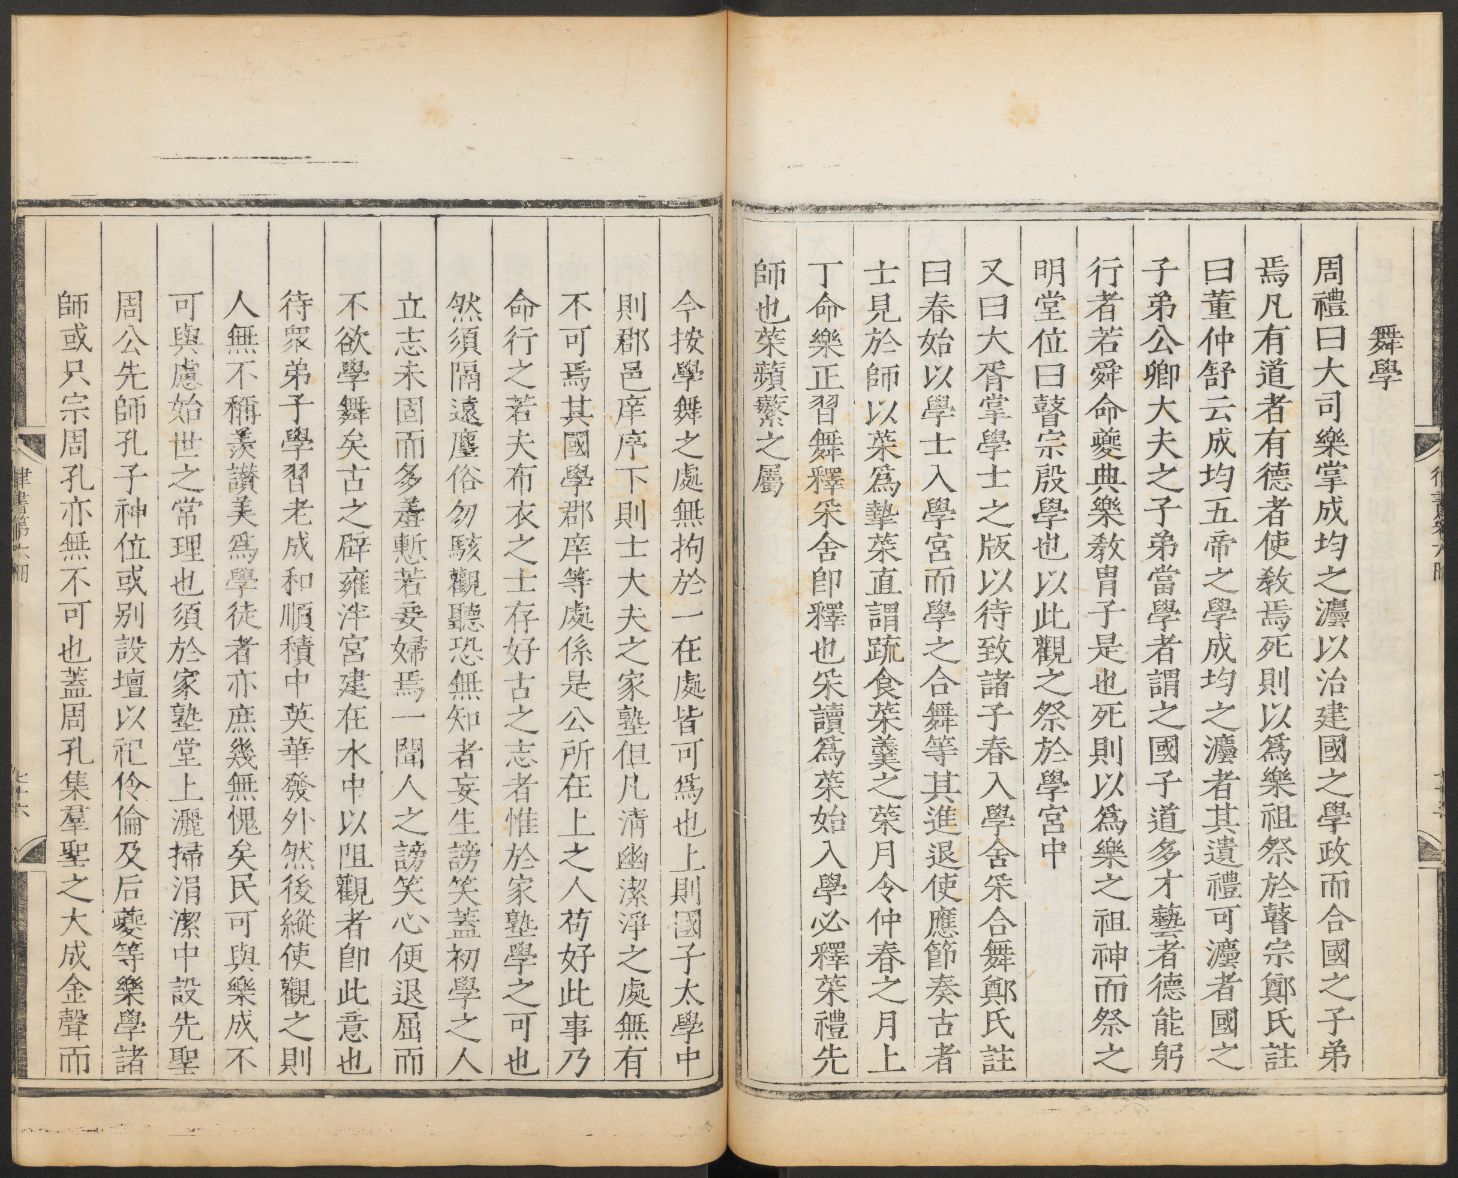 舞學
周禮曰大司樂掌成均之灋以治建國之學政而合國之子弟
焉凡有道者有德者使敎焉死則以爲樂祖祭於瞽宗鄭氏註
曰董仲舒云成均五帝之學成均之灋者其遺禮可灋者國之
子弟公卿大夫之子弟當學者謂之國子道多才藝者德能躬
行者若舜命夔典樂敎胄子是也死則以爲樂之祖神而祭之
明堂位曰瞽宗殷學也以此觀之祭於學宮中
又曰大胥掌學士之版以待致諸子春入學舍采合舞鄭氏註
曰春始以學士入學宮而學之合舞等其進退使應節奏古者
士見於師以菜爲摯菜直謂疏食菜羹之菜月令仲春之月上
丁命樂正習舞釋采舍卽釋也采讀爲菜始入學必釋菜禮先
師也菜蘋蘩之屬
今按學舞之處無拘於一在處皆可爲也上則國子太學中
則郡邑庠序下則士大夫之家塾但凡清幽潔淨之處無有
不可焉其國學郡庠等處係是公所在上之人苟好此事乃
命行之若夫布衣之士存好古之志者惟於家塾學之可也
然須隔遠塵俗勿駭觀聽恐無知者妄生謗笑蓋初學之人
立志未固而多羞慙若妾婦焉一聞人之謗笑心便退屈而
不欲學舞矣古之辟雍泮宮建在水中以阻觀者卽此意也
待眾弟子學習老成和順積中英華發外然後縱使觀之則
人無不稱羨讃美爲學徒者亦庶幾無愧矣民可與樂成不
可與慮始世之常理也須於家塾堂上灑掃涓潔中設先聖
周公先師孔子神位或别設壇以祀伶倫及后夔等樂學諸
師或只宗周孔亦無不可也蓋周孔集羣聖之大成金聲而